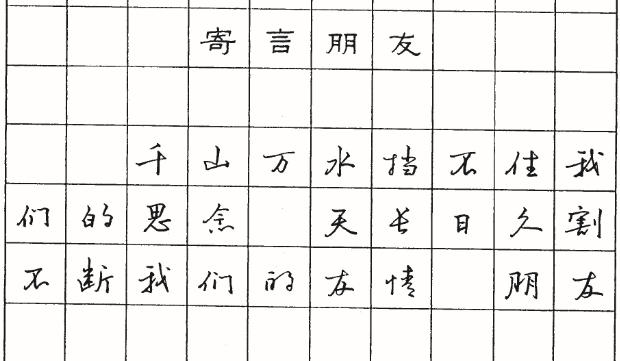 寄言朋友
千山万水挡不住我
们的思念 天长日久割
不断我们的友情 朋友